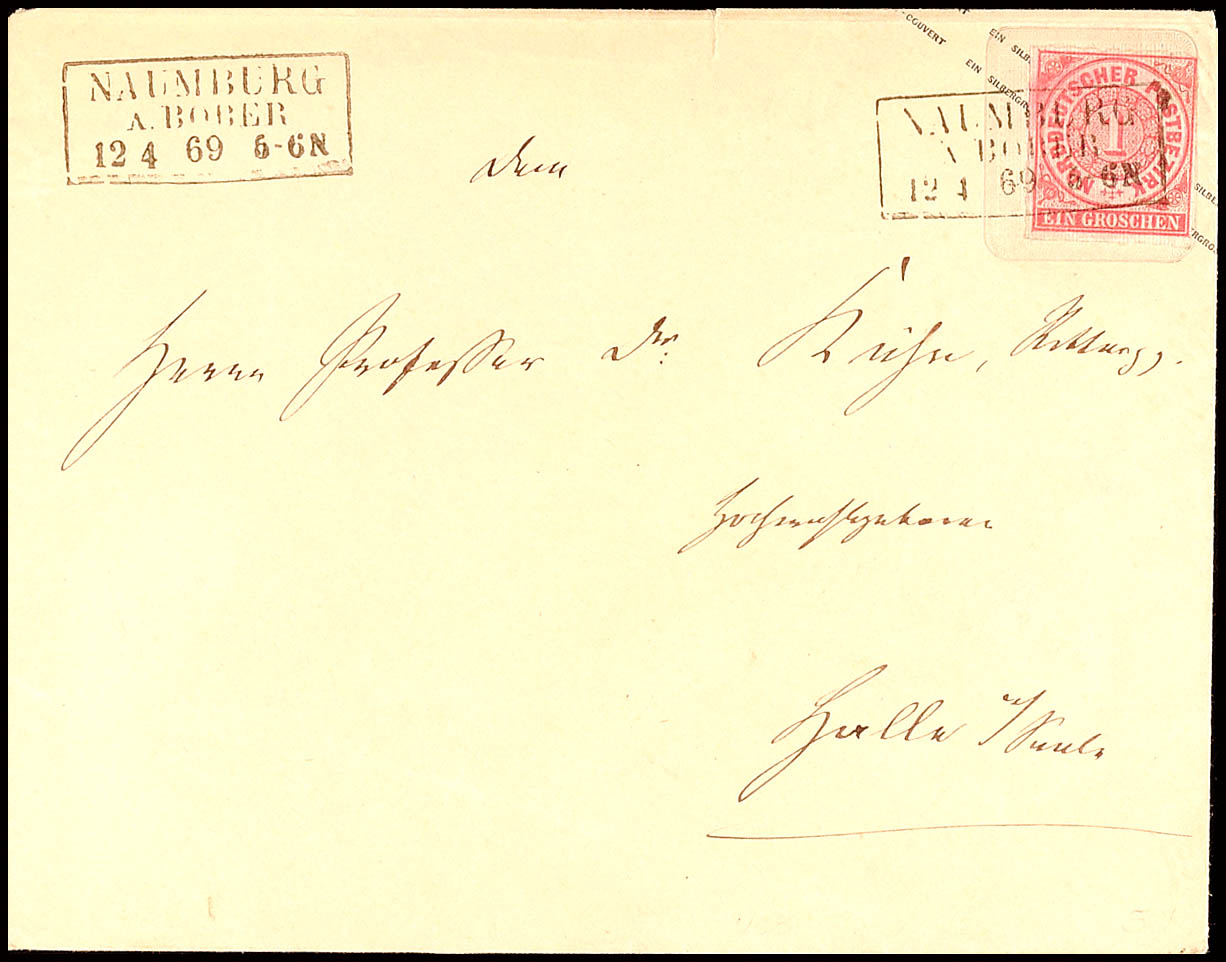 NAUMBURG
A. BOBER
12 4 69 5-6N
COUVERT
EIN SILB
EIN SILBERGR
NAUMBURG
A. BOBER
12 4 69 5-6N
NORDDEUTSCHER POSTBEZIRK
1
EIN GROSCHEN
SILBE
ERGRO
Dem
Herrn Professor Dr. Kühn, Ritter pp.
Hochwohlgeboren
Halle a/Saale